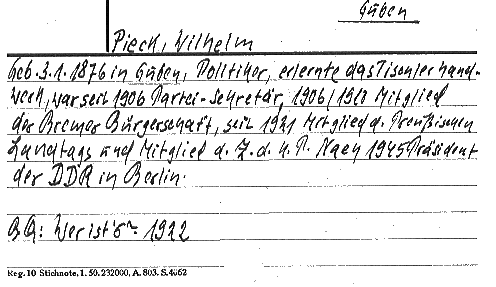 Guben
Pieck, Wilhelm
Geb. 3.1.1876 in Guben, Politiker, erlernte das Tischlerhand-
werk, war seit 1906 Partei-Sekretär, 1906/1910 Mitglied
der Bremer Bürgerschaft, seit 1921 Mitglied d. Preußischen
Landtags und Mitglied d. Z. d. K. P. Nach 1945 Präsident
der DDR in Berlin.
Wer ist's 1922
Reg. 10 Stichnote, 1. 50. 232000, A. 803. S. 4062